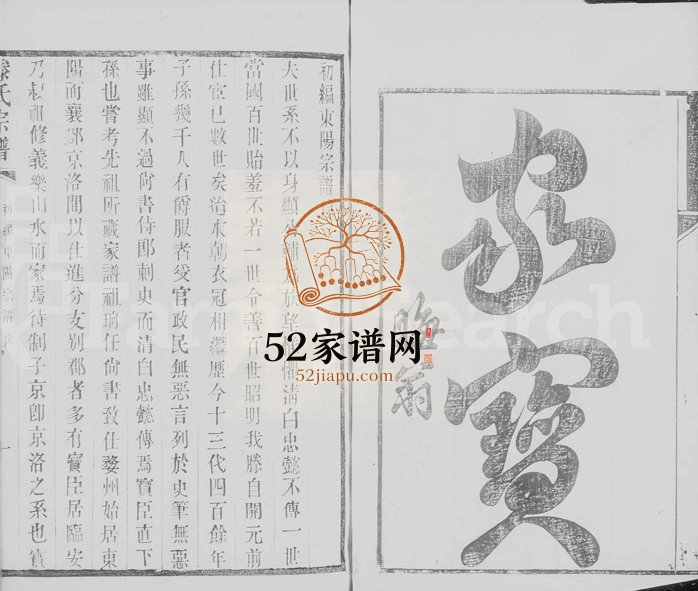 家寶
晦翁
初編東陽宗譜
夫世系不以身顯為
清白忠懿不傳一世
當國百世貽羞不若一世令善百世昭明我滕自開元前
仕宦已數世矣治本朝衣冠相繼歷今十三代四百餘年
子孫幾千人有爵服者受官政民無惡言列於史筆無惡
事雖顯不過尚書侍郎刺史而清白忠懿傳焉寶臣直下
孫也嘗考先祖所藏家譜祖珦任尚書致仕婺州始居東
陽而襄鄧京洛間以仕進分支別郡者多有寶臣居臨安
乃叔祖修義樂山水而家焉待制子京卽京洛之系也寶
滕氏宗譜
初編東陽宗譜序
一
52家谱网
52jiapu.com